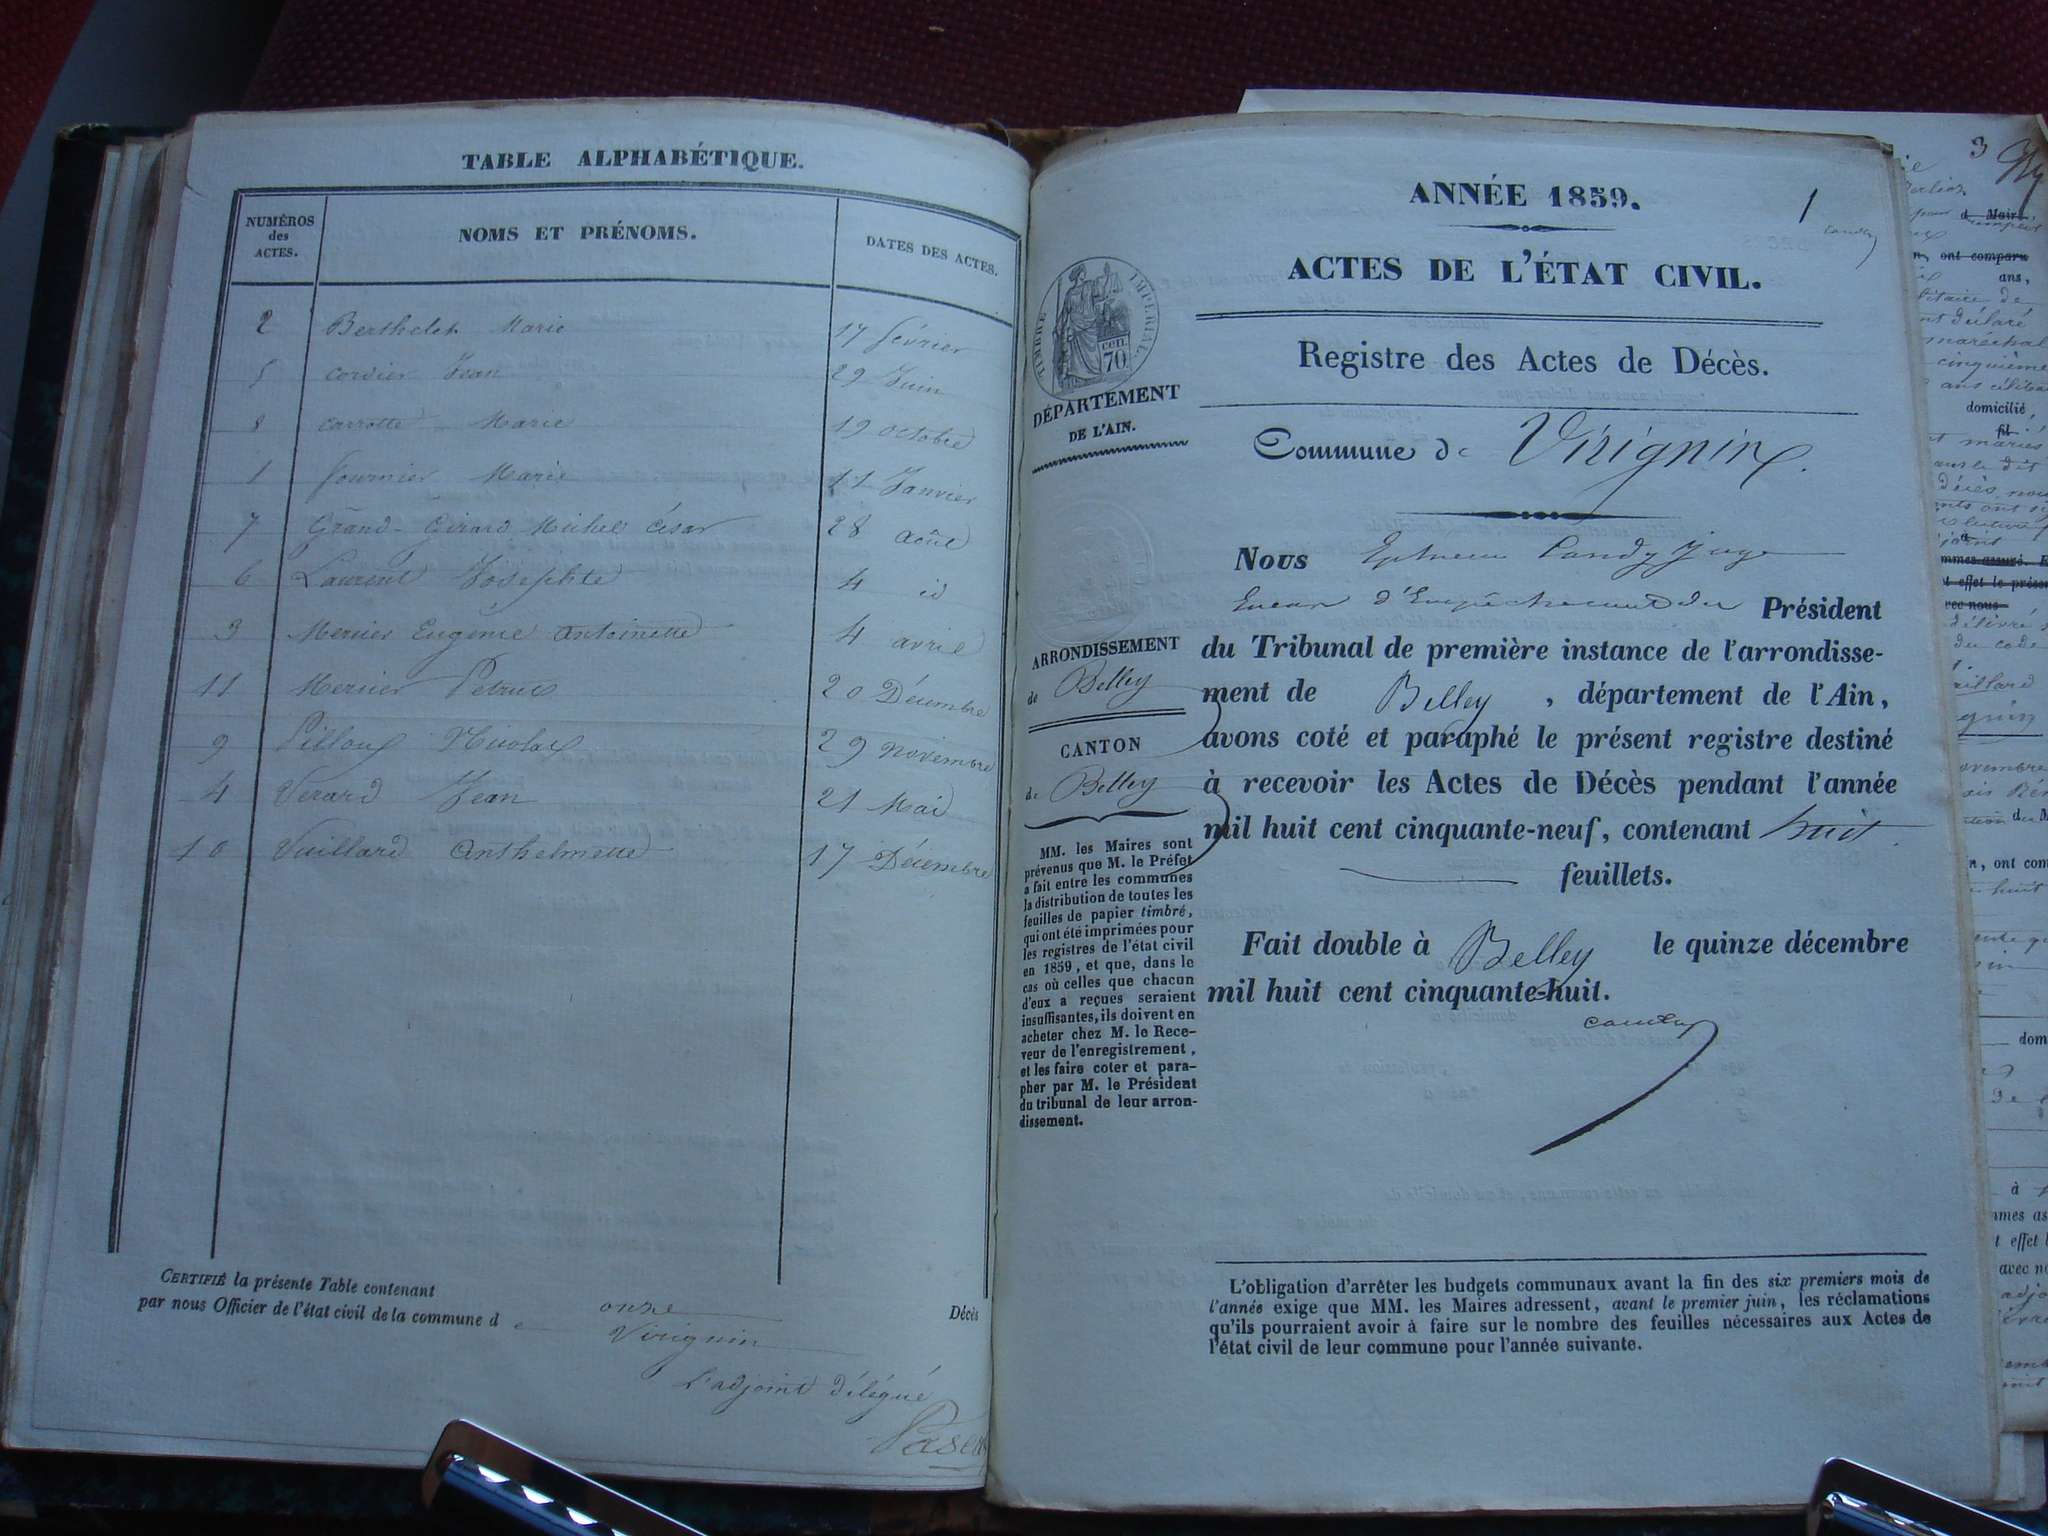 TABLE ALPHABÉTIQUE.
NUMÉROS des ACTES.
NOMS ET PRÉNOMS.
DATES DES ACTES.
2 Berthelet Marie 17 février
5 cordier Jean 29 Juin
8 carrotte Marie 19 octobre
1 fournier Marie 11 Janvier
7 Grand-Girard Michel César 28 Août
6 Laurent Josephte 4 id
3 Mercier Eugénie Antoinette 4 avril
11 Mercier 20 Décembre
9 Pilloux Nicolas 29 novembre
4 Verard Jean 21 Mai
10 Vuillard Anthelmette 17 Décembre
CERTIFIÉ la présente Table contenant onze Décès
par nous Officier de l'état civil de la commune de Virignin
L'adjoint délégué
1
ANNÉE 1859.
ACTES DE L'ÉTAT CIVIL.
Registre des Actes de Décès.
Commune de Virignin.
TIMBRE IMPÉRIAL.
70 cen.
DÉPARTEMENT
DE L'AIN.
ARRONDISSEMENT
de Belley
CANTON
de Belley
MM. les Maires sont
prévenus que M. le Préfet
a fait entre les communes
la distribution de toutes les
feuilles de papier timbré,
qui ont été imprimées pour
les registres de l'état civil
en 1859, et que, dans le
cas où celles que chacun
d'eux a reçues seraient
insuffisantes, ils doivent en
acheter chez M. le Rece-
veur de l'enregistrement,
et les faire coter et para-
pher par M. le Président
du tribunal de leur arron-
dissement.
Nous
d'Empêchement du Président
du Tribunal de première instance de l'arrondisse-
ment de Belley, département de l'Ain,
avons coté et paraphé le présent registre destiné
à recevoir les Actes de Décès pendant l'année
mil huit cent cinquante-neuf, contenant huit
feuillets.
Fait double à Belley le quinze décembre
mil huit cent cinquante-huit.
L'obligation d'arrêter les budgets communaux avant la fin des six premiers mois de
l'année exige que MM. les Maires adressent, avant le premier juin, les réclamations
qu'ils pourraient avoir à faire sur le nombre des feuilles nécessaires aux Actes de
l'état civil de leur commune pour l'année suivante.
3
ont comparu
ans,
domicilié,
fil